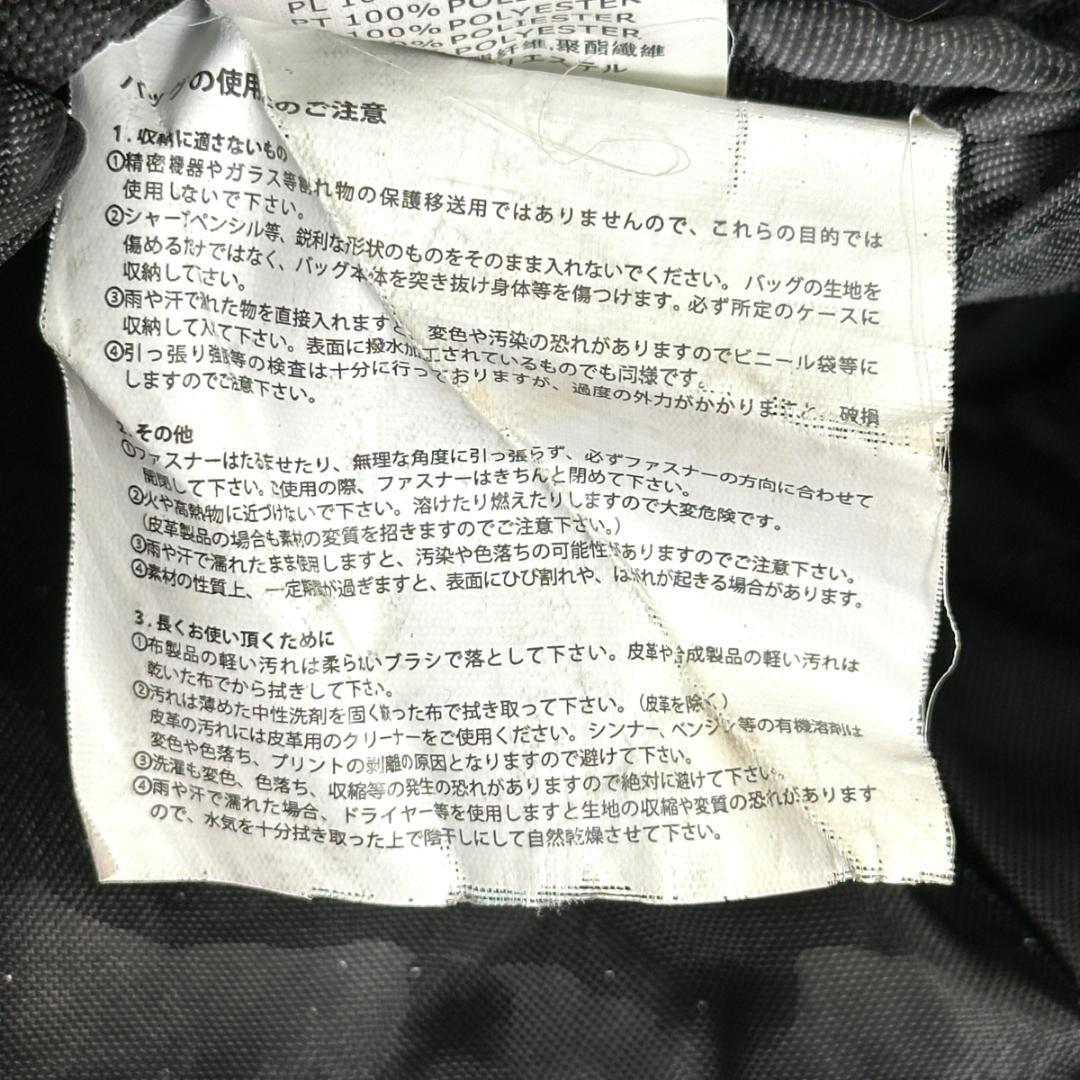 100% POLYESTER
PT 100% POLYESTER
100% POLYESTER
聚酯纖維
エステル
バッグの使用 のご注意
1.収納に適さないもの
①精密機器やガラス等割れ物の保護移送用ではありませんので、これらの目的では
使用しないで下さい。
②シャープペンシル等、鋭利な形状のものをそのまま入れないでください。バッグの生地を
傷めるだけではなく、バッグ本体を突き抜け身体等を傷つけます。必ず所定のケースに
収納して下さい。
③雨や汗で濡れた物を直接入れますと、変色や汚染の恐れがありますのでビニール袋等に
収納して入れて下さい。表面に撥水加工されているものでも同様です。
④引っ張り強度等の検査は十分に行っておりますが、過度の外力がかかりますと、破損
しますのでご注意下さい。
2.その他
①ファスナーはたるませたり、無理な角度に引っ張らず、必ずファスナーの方向に合わせて
開閉して下さい。ご使用の際、ファスナーはきちんと閉めて下さい。
②火や高熱物に近づけないで下さい。溶けたり燃えたりしますので大変危険です。
(皮革製品の場合も素材の変質を招きますのでご注意下さい。)
③雨や汗で濡れたまま使用しますと、汚染や色落ちの可能性がありますのでご注意下さい。
④素材の性質上、一定期間が過ぎますと、表面にひび割れや、はがれが起きる場合があります。
3.長くお使い頂くために
①布製品の軽い汚れは柔らかいブラシで落として下さい。皮革や合成製品の軽い汚れは
乾いた布でから拭きして下さい。
②汚れは薄めた中性洗剤を固く絞った布で拭き取って下さい。(皮革を除く)
皮革の汚れには皮革用のクリーナーをご使用ください。シンナー、ベンジン等の有機溶剤は
変色や色落ち、プリントの剥離の原因となりますので避けて下さい。
③洗濯も変色、色落ち、収縮等の発生の恐れがありますので絶対に避けて下さい。
④雨や汗で濡れた場合、ドライヤー等を使用しますと生地の収縮や変質の恐れがあります
ので、水気を十分拭き取った上で陰干しにして自然乾燥させて下さい。